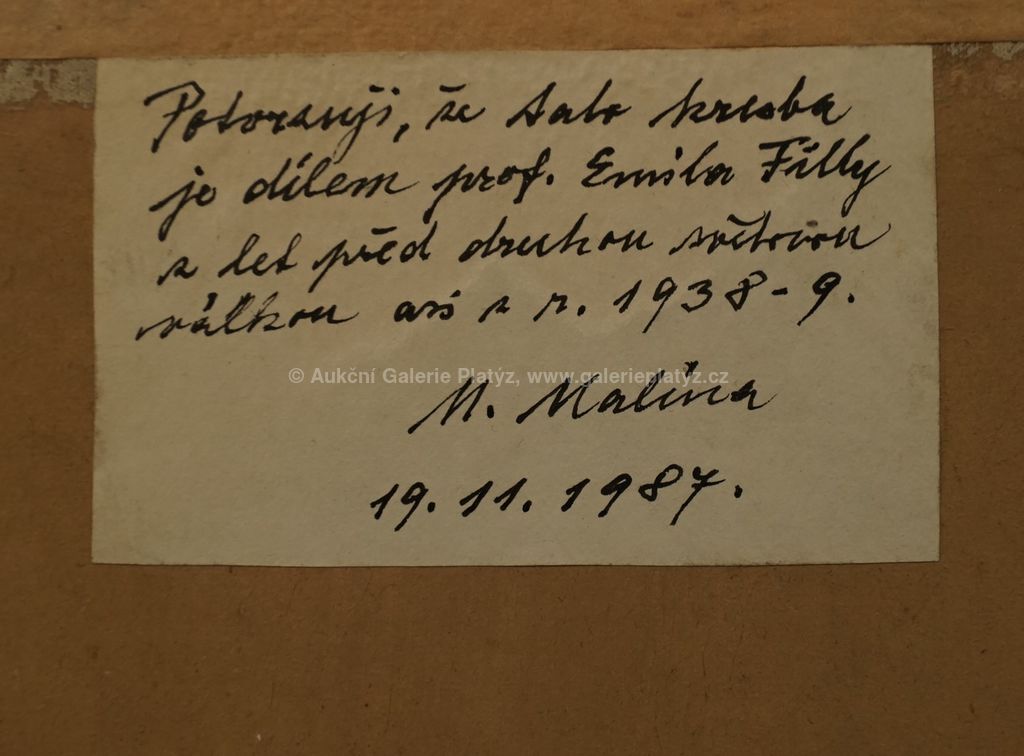 Potvrzuji, že tato kresba
je dílem prof. Emila Filly
z let před druhou světovou
válkou asi z r. 1938-9.
© Aukční Galerie Platýz, www.galerieplatyz.cz
M. Malina
19. 11. 1987.